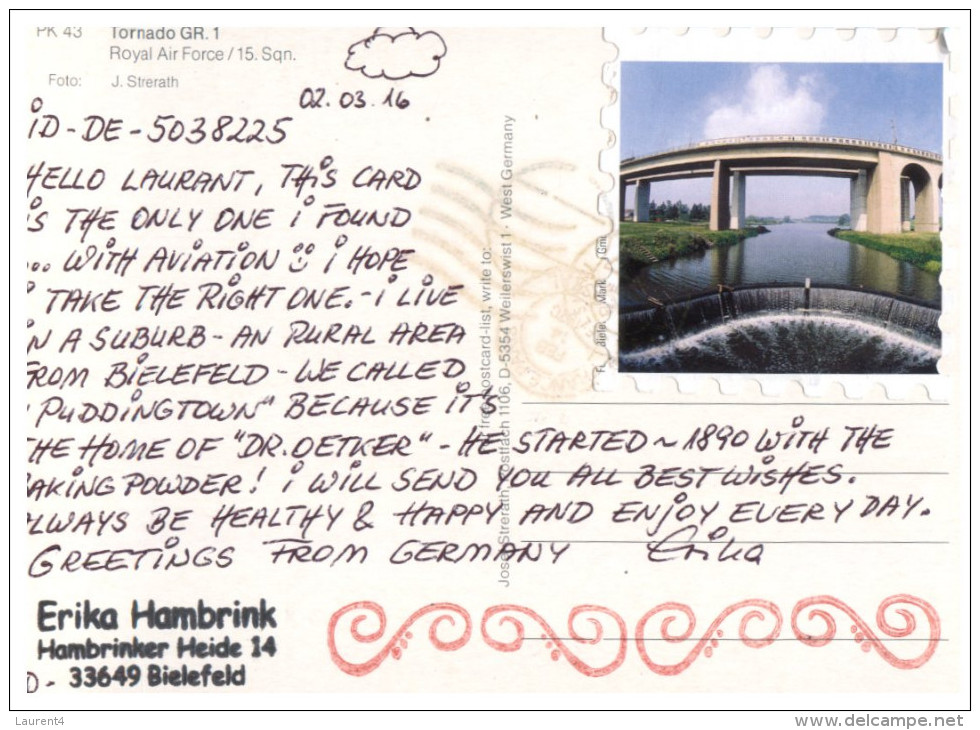 PK 43 Tornado GR. 1
Royal Air Force / 15. Sqn.
Foto: J. Strerath
02.03.16
iD-DE-5038225
HELLO LAURANT, THiS CARD
iS THE ONLY ONE i FOUND
... WiTH AViATiON i HOPE
i TAKE THE RiGHT ONE.-i LiVE
iN A SUBURB-AN RURAL AREA
FROM BiELEFELD-WE CALLED
"PUDDiNGTOWN" BECAUSE iT'S
THE HOME OF "DR.OETKER"-HE STARTED ~1890 WiTH THE
BAKiNG POWDER! i WiLL SEND YOU ALL BEST WiSHES.
ALWAYS BE HEALTHY & HAPPY AND ENJOY EVERY DAY.
GREETiNGS FROM GERMANY Erika
Erika Hambrink
Hambrinker Heide 14
D - 33649 Bielefeld
postcard-list, write to:
Strerath, Postfach 1106, D-5354 Weilerswist 1 · West Germany
Laurent4
www.delcampe.net